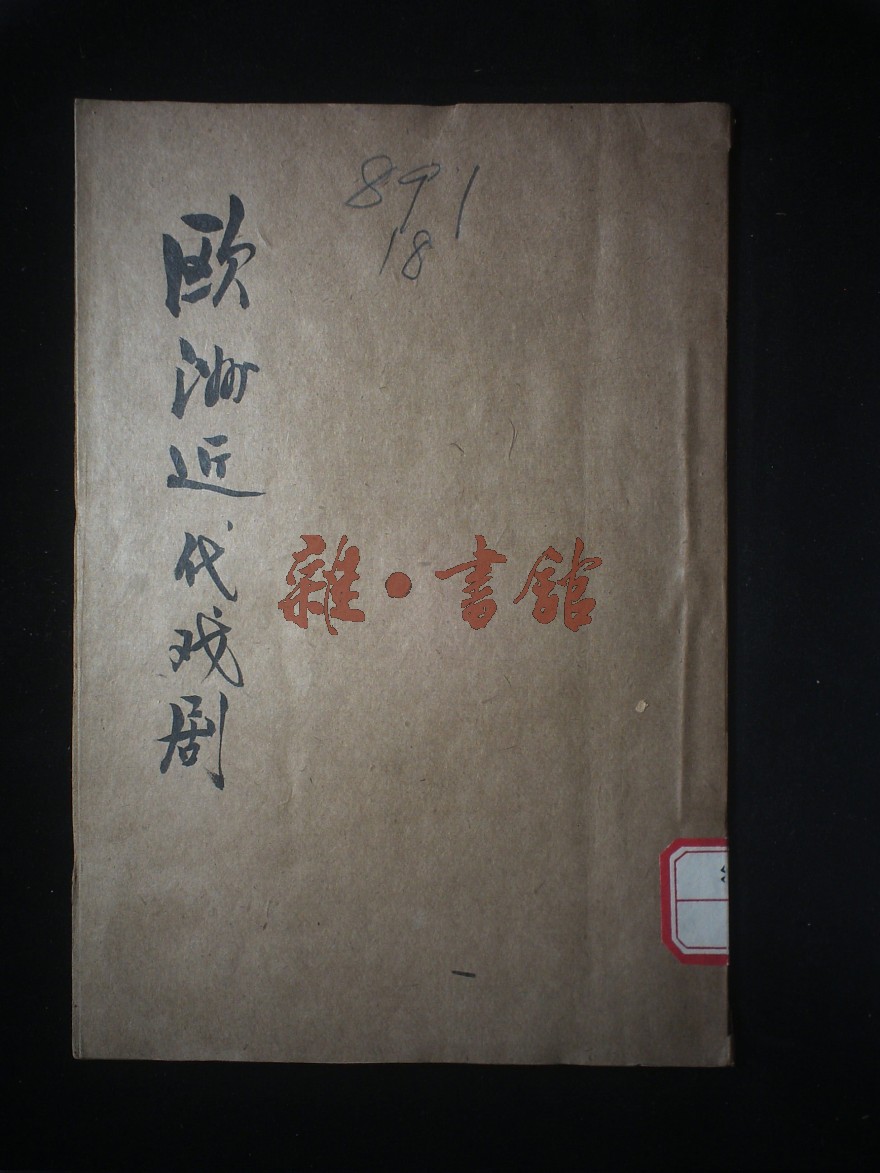 891
18
欧洲近代戏剧
雜·書館